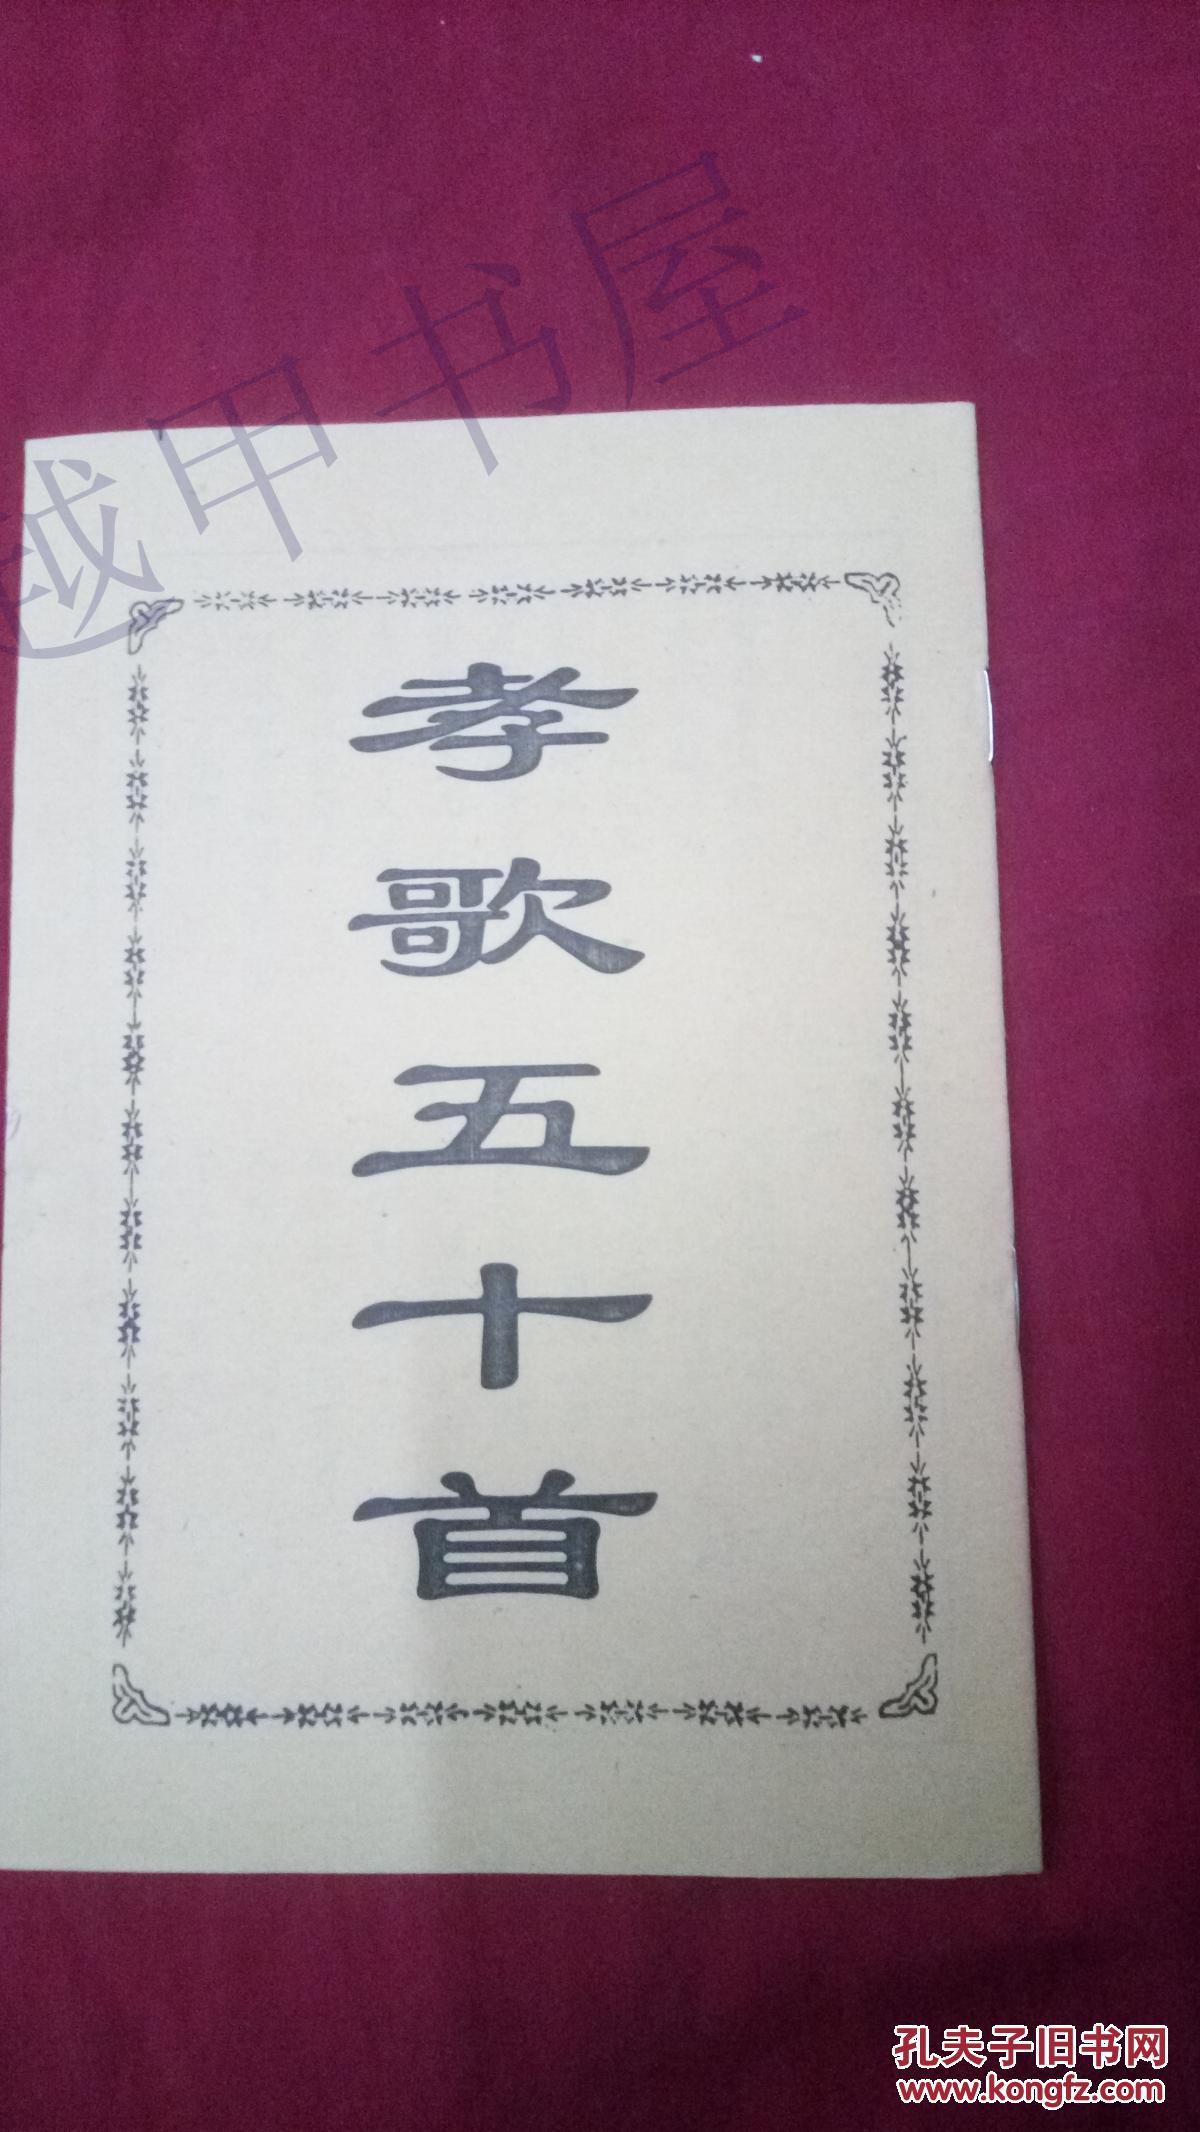 越甲书屋
孝歌五十首
孔夫子旧书网
www.kongfz.com